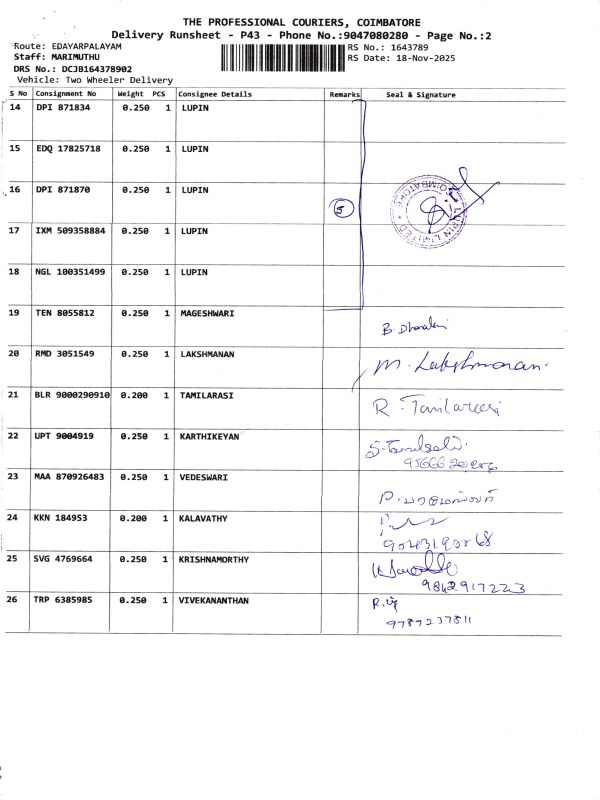 THE PROFESSIONAL COURIERS, COIMBATORE
Delivery Runsheet - P43 - Phone No.:9047080280 - Page No.:2
Route: EDAYARPALAYAM RS No.: 1643789
Staff: MARIMUTHU RS Date: 18-Nov-2025
DRS No.: DCJB164378902
Vehicle: Two Wheeler Delivery
S No Consignment No Weight PCS Consignee Details Remarks Seal & Signature
14 DPI 871834 0.250 1 LUPIN
15 EDQ 17825718 0.250 1 LUPIN
16 DPI 871870 0.250 1 LUPIN
5
LUPIN LIMITED COIMBATORE
17 IXM 509358884 0.250 1 LUPIN
18 NGL 100351499 0.250 1 LUPIN
19 TEN 8055812 0.250 1 MAGESHWARI
B.
20 RMD 3051549 0.250 1 LAKSHMANAN
M. Lakshmanan.
21 BLR 9000290910 0.200 1 TAMILARASI
R. Tamilarasi
22 UPT 9004919 0.250 1 KARTHIKEYAN
23 MAA 870926483 0.250 1 VEDESWARI
24 KKN 184953 0.200 1 KALAVATHY
25 SVG 4769664 0.250 1 KRISHNAMORTHY
9842917223
26 TRP 6385985 0.250 1 VIVEKANANTHAN
9787237811